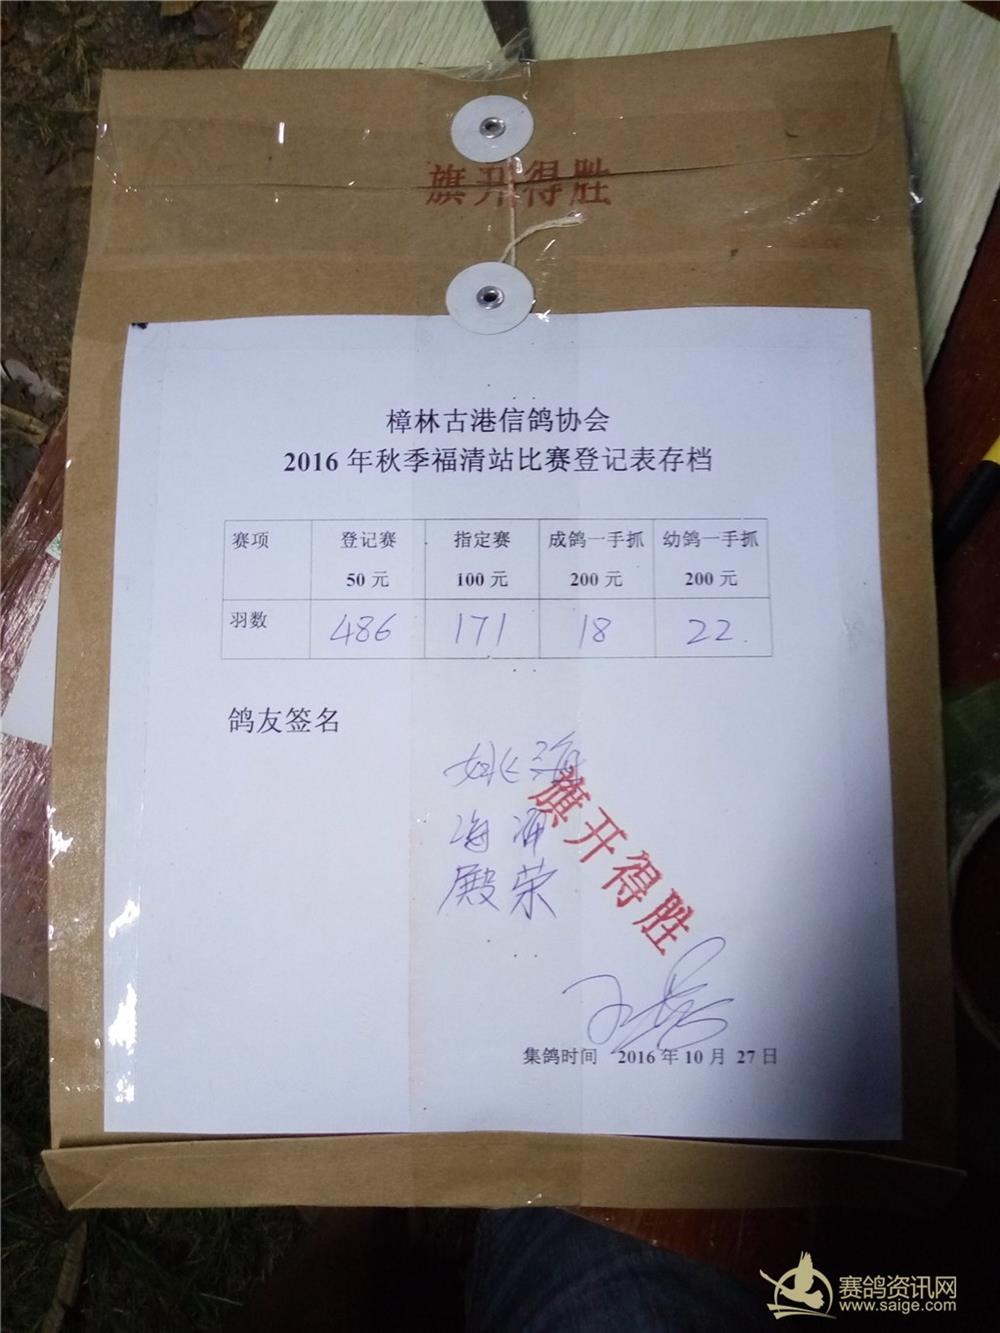 旗开得胜
樟林古港信鸽协会
2016年秋季福清站比赛登记表存档
赛项 登记赛 指定赛 成鸽一手抓 幼鸽一手抓
50元 100元 200元 200元
羽数 486 171 18 22.
鸽友签名
姚海
海涌
殿荣
旗开得胜
集鸽时间 2016年10月27日
赛鸽资讯网
www.saige.com